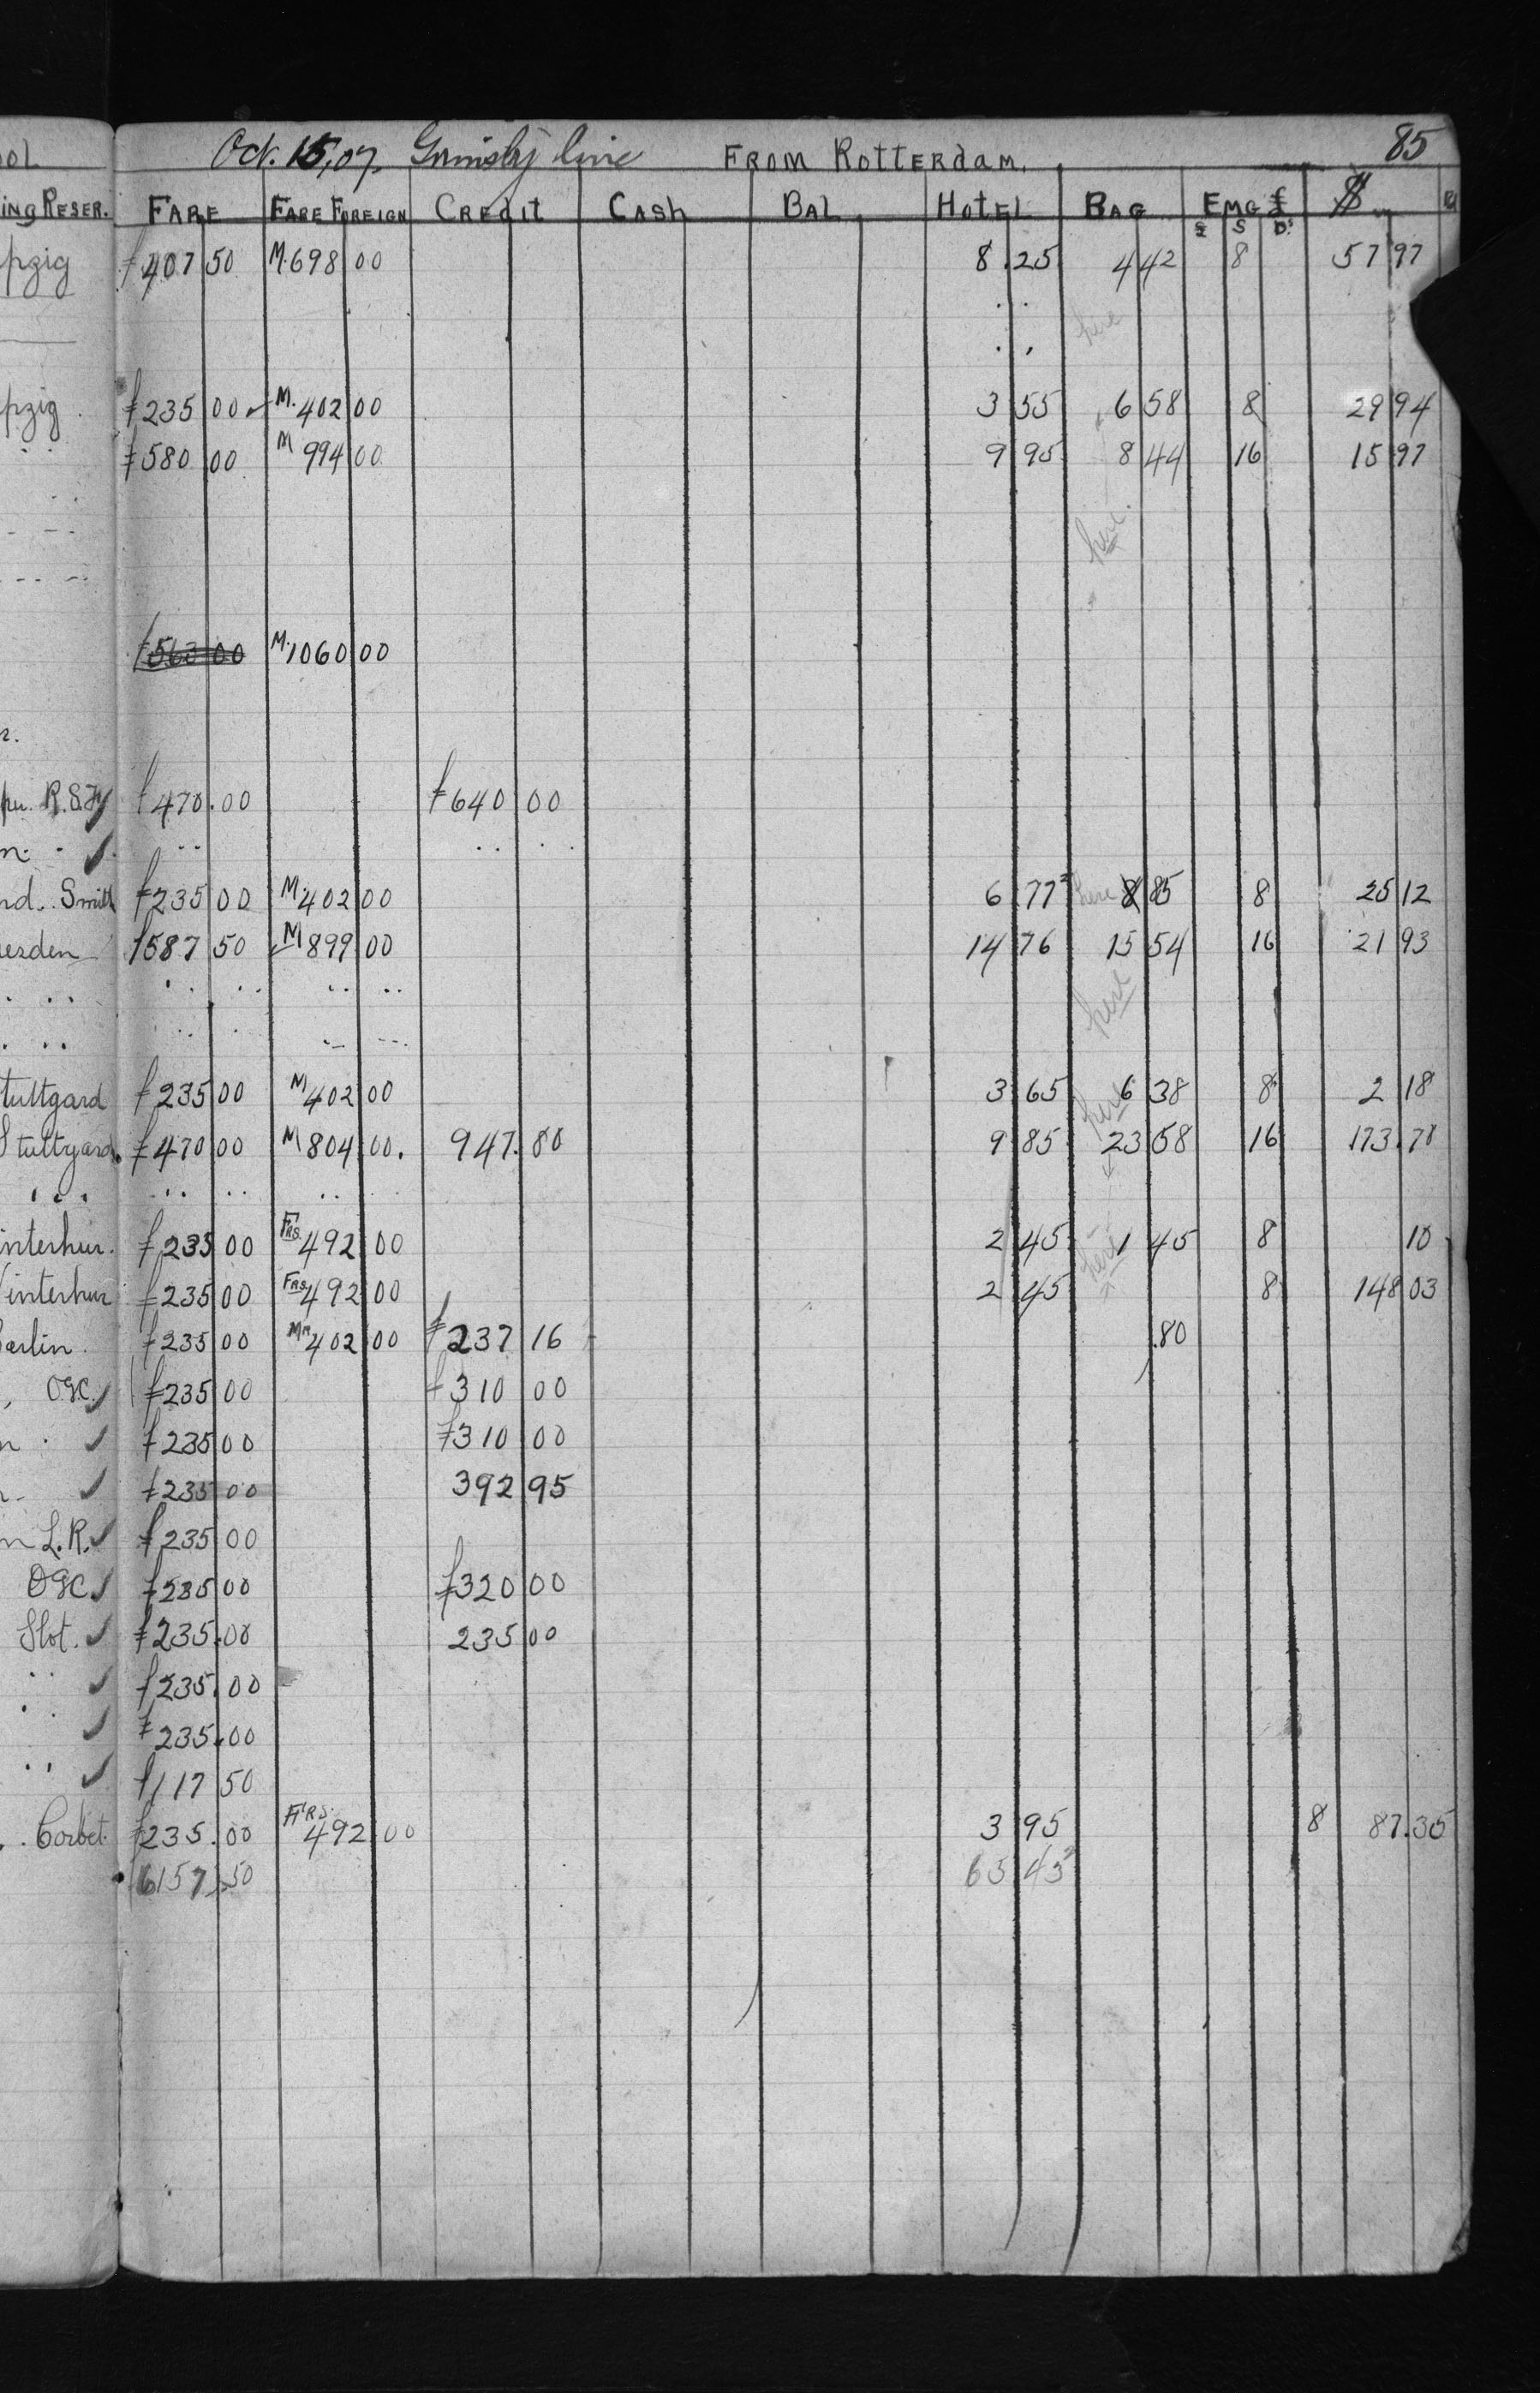 ol Oct. 15, 07. Grimsby line FROM ROTTERDAM. 85
ING RESER. FARE FARE FOREIGN CREDIT CASH BAL. HOTEL BAG EMG £ $
£ S D.
pzig f 407 50 M. 698 00 8 25 4 42 8 57 97
here
pzig. f 235 00 M. 402 00 3 55 6 58 8 29 94
f 580 00 M 994 00 9 95 8 44 16 15 97
here.
f 563 00 M. 1060 00
r.
R.S.Fy f 470.00 f 640 00
n.
nd. Smith f 235 00 M. 402 00 6 77² here 8 85 8 25 12
resden f 587 50 M 899 00 14 76 15 54 16 21 93
here
tuttgard f 235 00 M 402 00 3 65 here 6 38 8 2 18
Stuttgard. f 470 00 M 804 00. 947. 80 9 85 23 58 16 173.70
interhur. f 235 00 FRS. 492 00 2 45 here 1 45 8 10
interhur f 235 00 FRS. 492 00 2 45 8 148 03
Berlin. f 235 00 MK 402 00 f 237 16 .80
, OGC. f 235 00 f 310 00
n. f 235 00 f 310 00
f 235 00 392 95
n L.R. f 235 00
OGC. f 235 00 f 320 00
Slot. f 235.00 235 00
f 235.00
f 235.00
f 117 50
. Corbet. f 235.00 FRS. 492 00 3 95 8 87.35
6157.50 65 43²